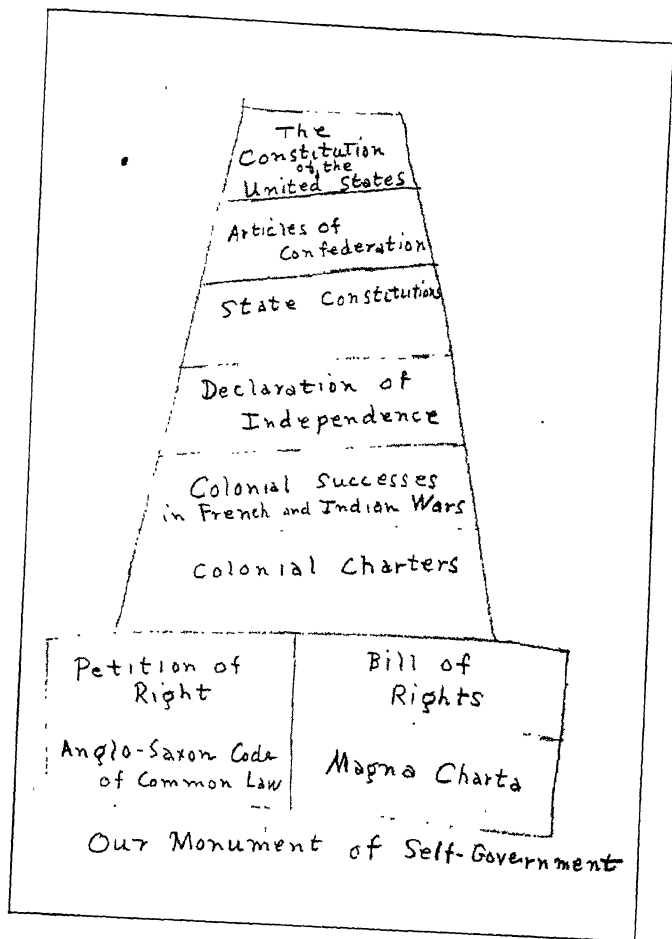 The
Constitution
of the
United States
Articles of
Confederation
State Constitutions
Declaration of
Independence
Colonial Successes
in French and Indian Wars
Colonial Charters
Petition of
Right
Bill of
Rights
Anglo-Saxon Code
of Common Law
Magna Charta
Our Monument of Self-Government